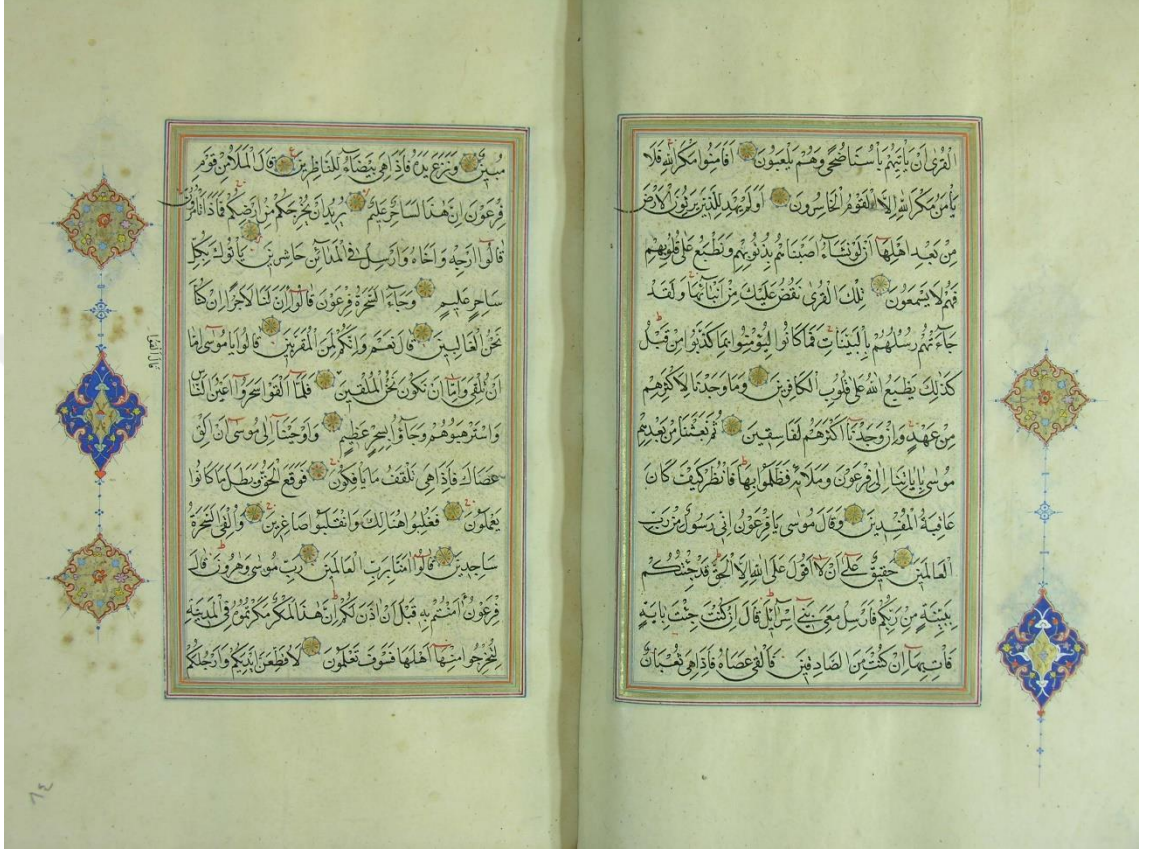 القرى ان ياتيهم باسنا ضحى وهم يلعبون افامنوا مكر الله فلا
يامن مكر الله الا القوم الخاسرون اولم يهد للذين يرثون الارض
من بعد اهلها ان لو نشاء اصبناهم بذنوبهم ونطبع على قلوبهم
فهم لا يسمعون تلك القرى نقص عليك من انبائها ولقد
جاءتهم رسلهم بالبينات فما كانوا ليؤمنوا بما كذبوا من قبل
كذلك يطبع الله على قلوب الكافرين وما وجدنا لاكثرهم
من عهد وان وجدنا اكثرهم لفاسقين ثم بعثنا من بعدهم
موسى باياتنا الى فرعون وملائه فظلموا بها فانظر كيف كان
عاقبة المفسدين وقال موسى يا فرعون انى رسول من رب
العالمين حقيق على ان لا اقول على الله الا الحق قد جئتكم
ببينة من ربكم فارسل معى بنى اسرائل قال ان كنت جئت باية
فات بها ان كنت من الصادقين فالقى عصاه فاذا هى ثعبان
مبين ونزع يده فاذا هى بيضاء للناظرين قال الملا من قوم
فرعون ان هذا لساحر عليم يريد ان يخرجكم من ارضكم فماذا تامرون
قالوا ارجه واخاه وارسل فى المدائن حاشرين ياتوك بكل
ساحر عليم وجاء السحرة فرعون قالوا ان لنا لاجرا ان كنا
نحن الغالبين قال نعم وانكم لمن المقربين قالوا يا موسى اما
ان تلقى واما ان نكون نحن الملقين فلما القوا سحروا اعين الناس
واسترهبوهم وجاؤا بسحر عظيم واوحينا الى موسى ان الق
عصاك فاذا هى تلقف ما يافكون فوقع الحق وبطل ما كانوا
يعملون فغلبوا هنالك وانقلبوا صاغرين والقى السحرة
ساجدين قالوا امنا برب العالمين رب موسى وهرون قال
فرعون امنتم به قبل ان اذن لكم ان هذا لمكر مكرتموه فى المدينة
لتخرجوا منها اهلها فسوف تعلمون لاقطعن ايديكم وارجلكم
٦٤